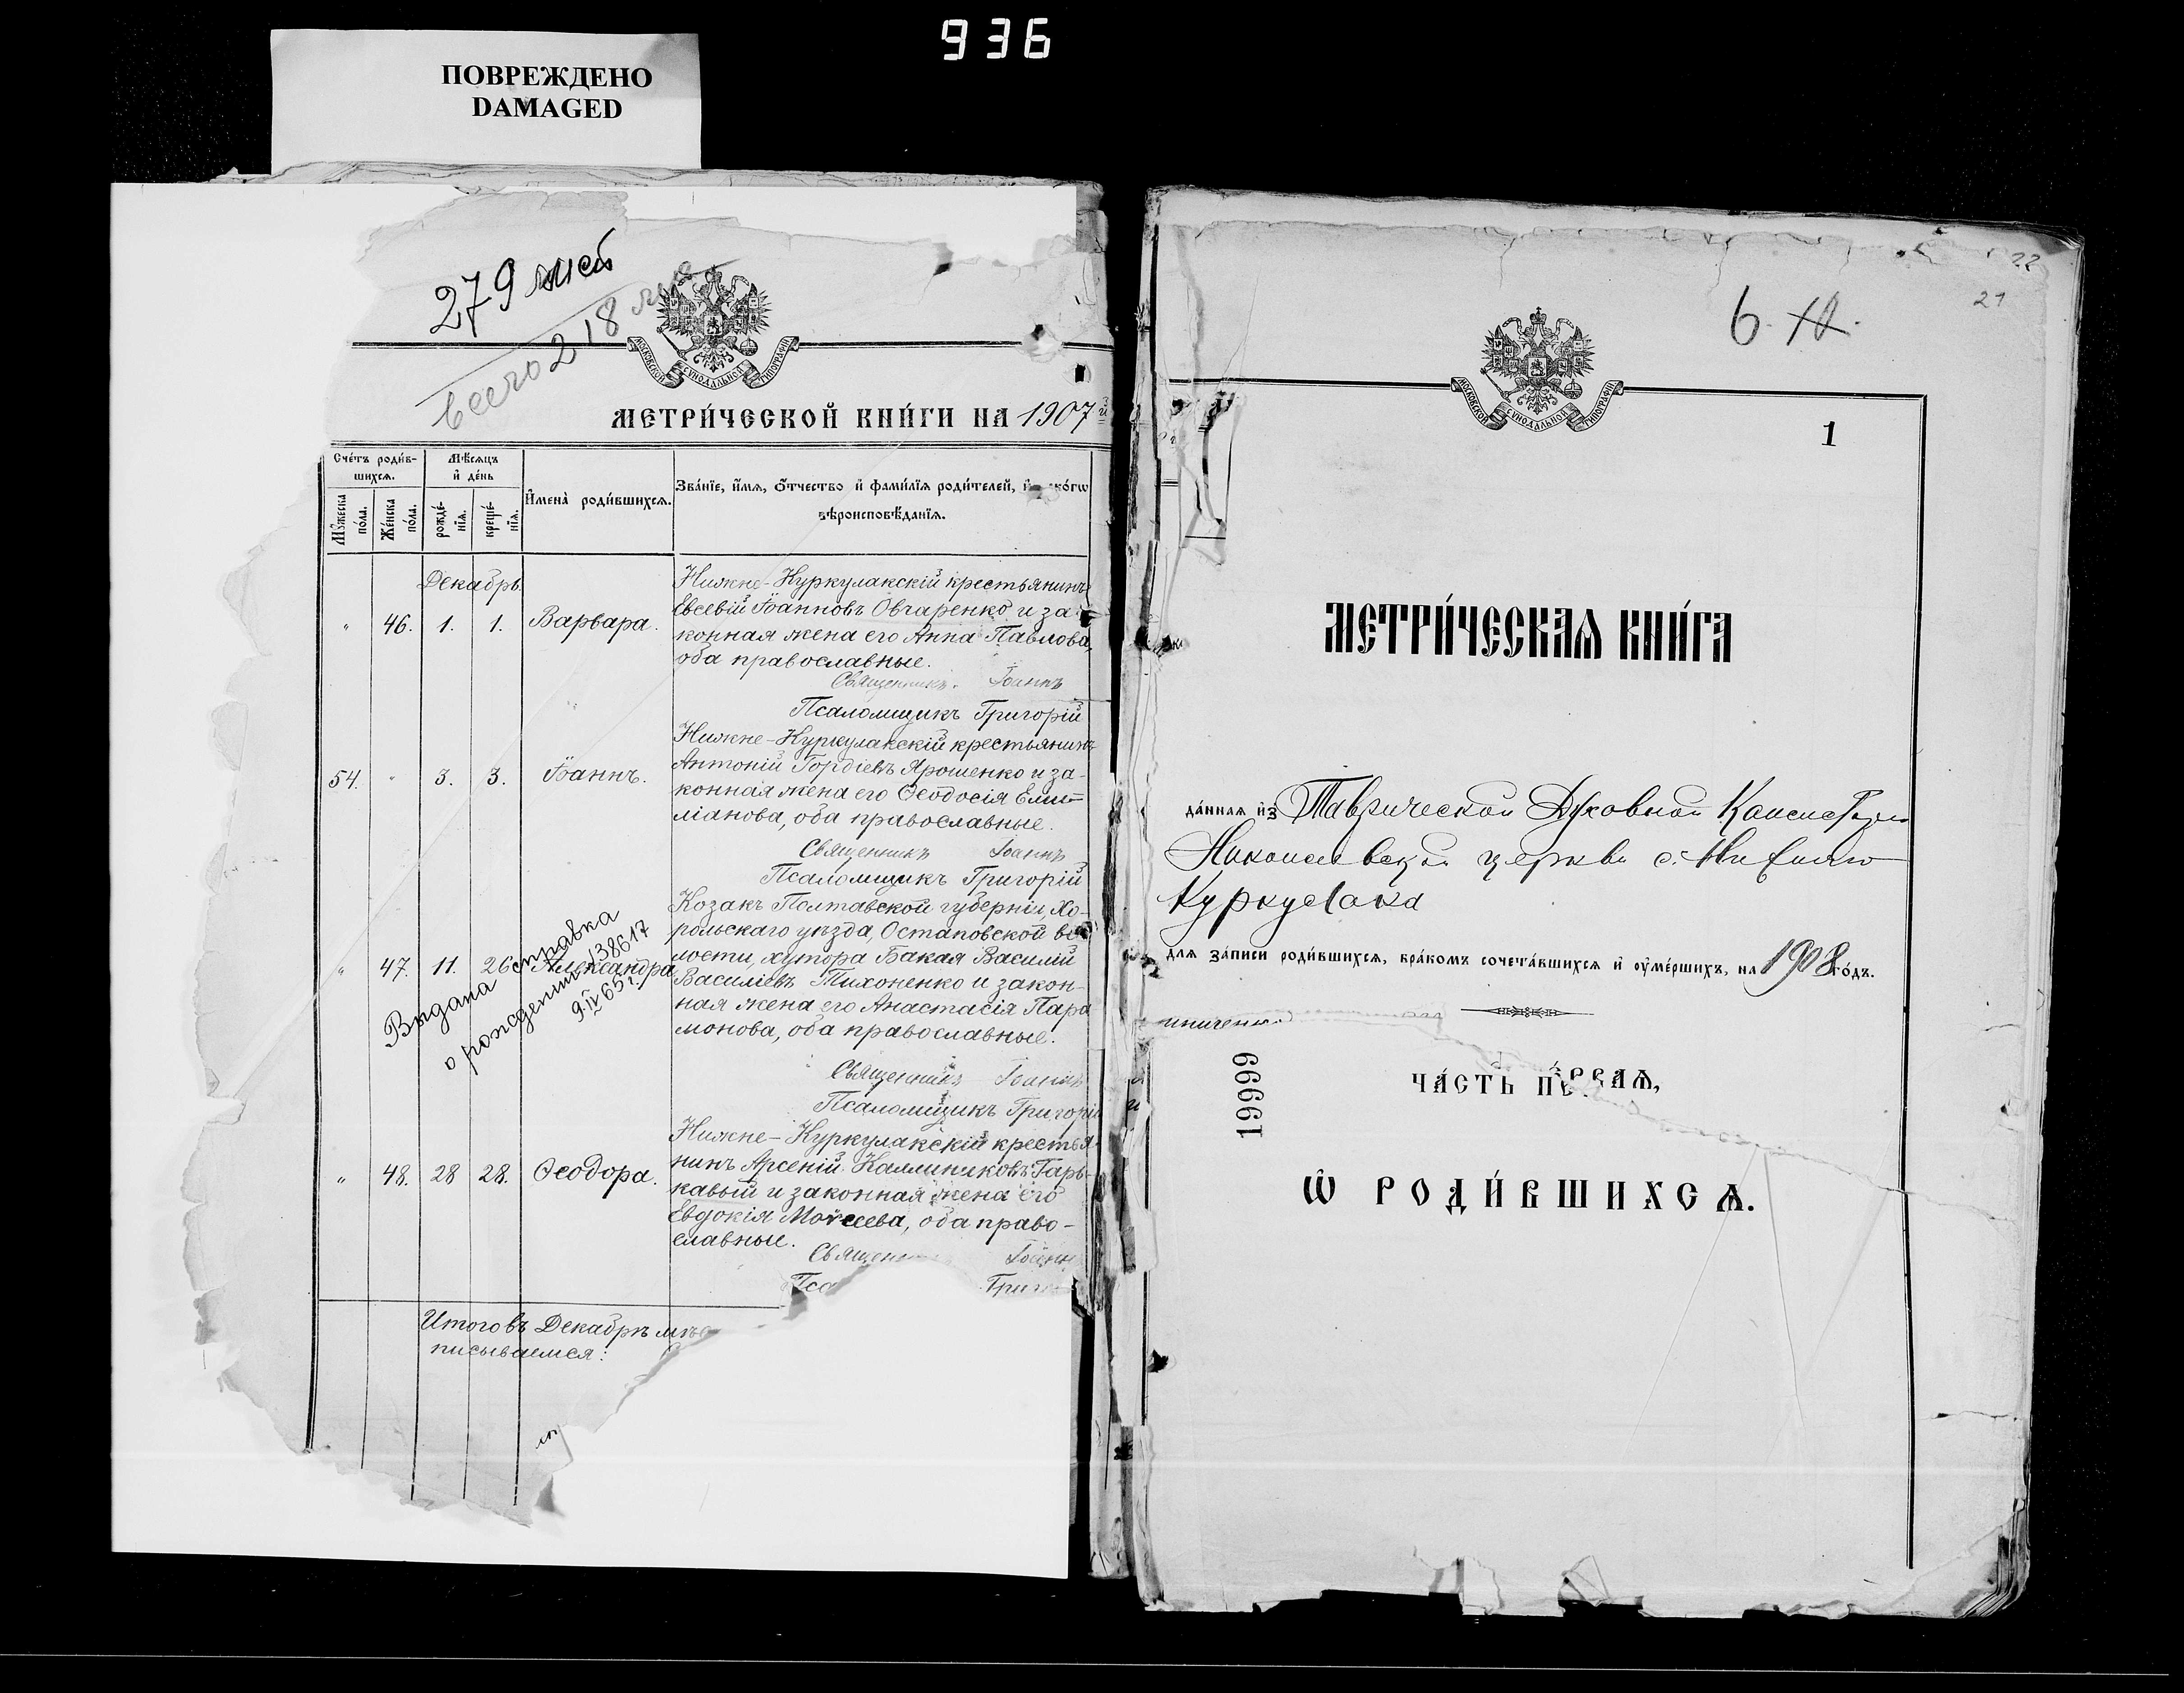 936
ПОВРЕЖДЕНО
DAMAGED
279 жен
всего 218
МОСКОВСКОЙ СѴНОДАЛЬНОЙ ТИПОГРАФІИ
МЕТРИ́ЧЕСКОЙ КНИ́ГИ НА 1907
Сче́тъ роди́в-
шихсѧ.
Мѣ́сѧцъ
и҆ де́нь
Мꙋ́жеска
по́ла.
Же́нска
по́ла.
рожде́-
нїѧ.
креще́-
нїѧ.
И҆мена̀ роди́вшихсѧ.
Зва́нїе, и҆́мѧ, ѻ҆́тчество и҆ фами́лїѧ роди́телей, и҆
вѣроисповѣ́данїѧ.
Декабрь.
" 46. 1. 1. Варвара.
Нижне-Куркулакскій крестьянинъ
Евсевій Іоанновъ Овчаренко и за-
конная жена его Анна Павлова,
оба православные.
Священникъ. Іоаннъ
Псаломщикъ Григорій
54. " 3. 3. Іоаннъ.
Нижне-Куркулакскій крестьянинъ
Антоній Гордіевъ Ярошенко и за-
конная жена его Ѳеодосія Еми-
ліанова, оба православные.
Священникъ Іоаннъ
Псаломщикъ Григорій
" 47. 11. 26 Александра
Козакъ Полтавской губерніи, Хо-
рольскаго уѣзда, Остаповской во-
лости, хутора Бакая Василій
Василіевъ Тихоненко и закон-
ная жена его Анастасія Пара
монова, оба православные.
Выдана справка
о рождении 138617
9.IV 65 г.
Священникъ Іоаннъ
Псаломщикъ Григорій
" 48. 28 28. Ѳеодора.
Нижне-Куркулакскій крестья-
нинъ Арсеній Каллиниковъ Гарь-
кавый и законная жена его
Евдокія Моисеева, оба право-
славные.
Священ Іоанн
Пса Григ
Итого въ Декабрѣ мѣс
писывается:
22
21
6.
МОСКОВСКОЙ СѴНОДАЛЬНОЙ ТИПОГРАФІИ
1
МЕТРИ́ЧЕСКАѦ КНИ́ГА
да́ннаѧ и҆з Таврической Духовной Консисторіи
Николаевской церкви с. Нижняго
Куркулака
длѧ за́писи роди́вшихсѧ, бра́комъ сочета́вшихсѧ и҆ ᲂу҆ме́ршихъ, на 1908 го́дъ.
19999
ЧА́СТЬ ПЕ́РВАѦ,
Ѡ҆ РОДИ́ВШИХСѦ.